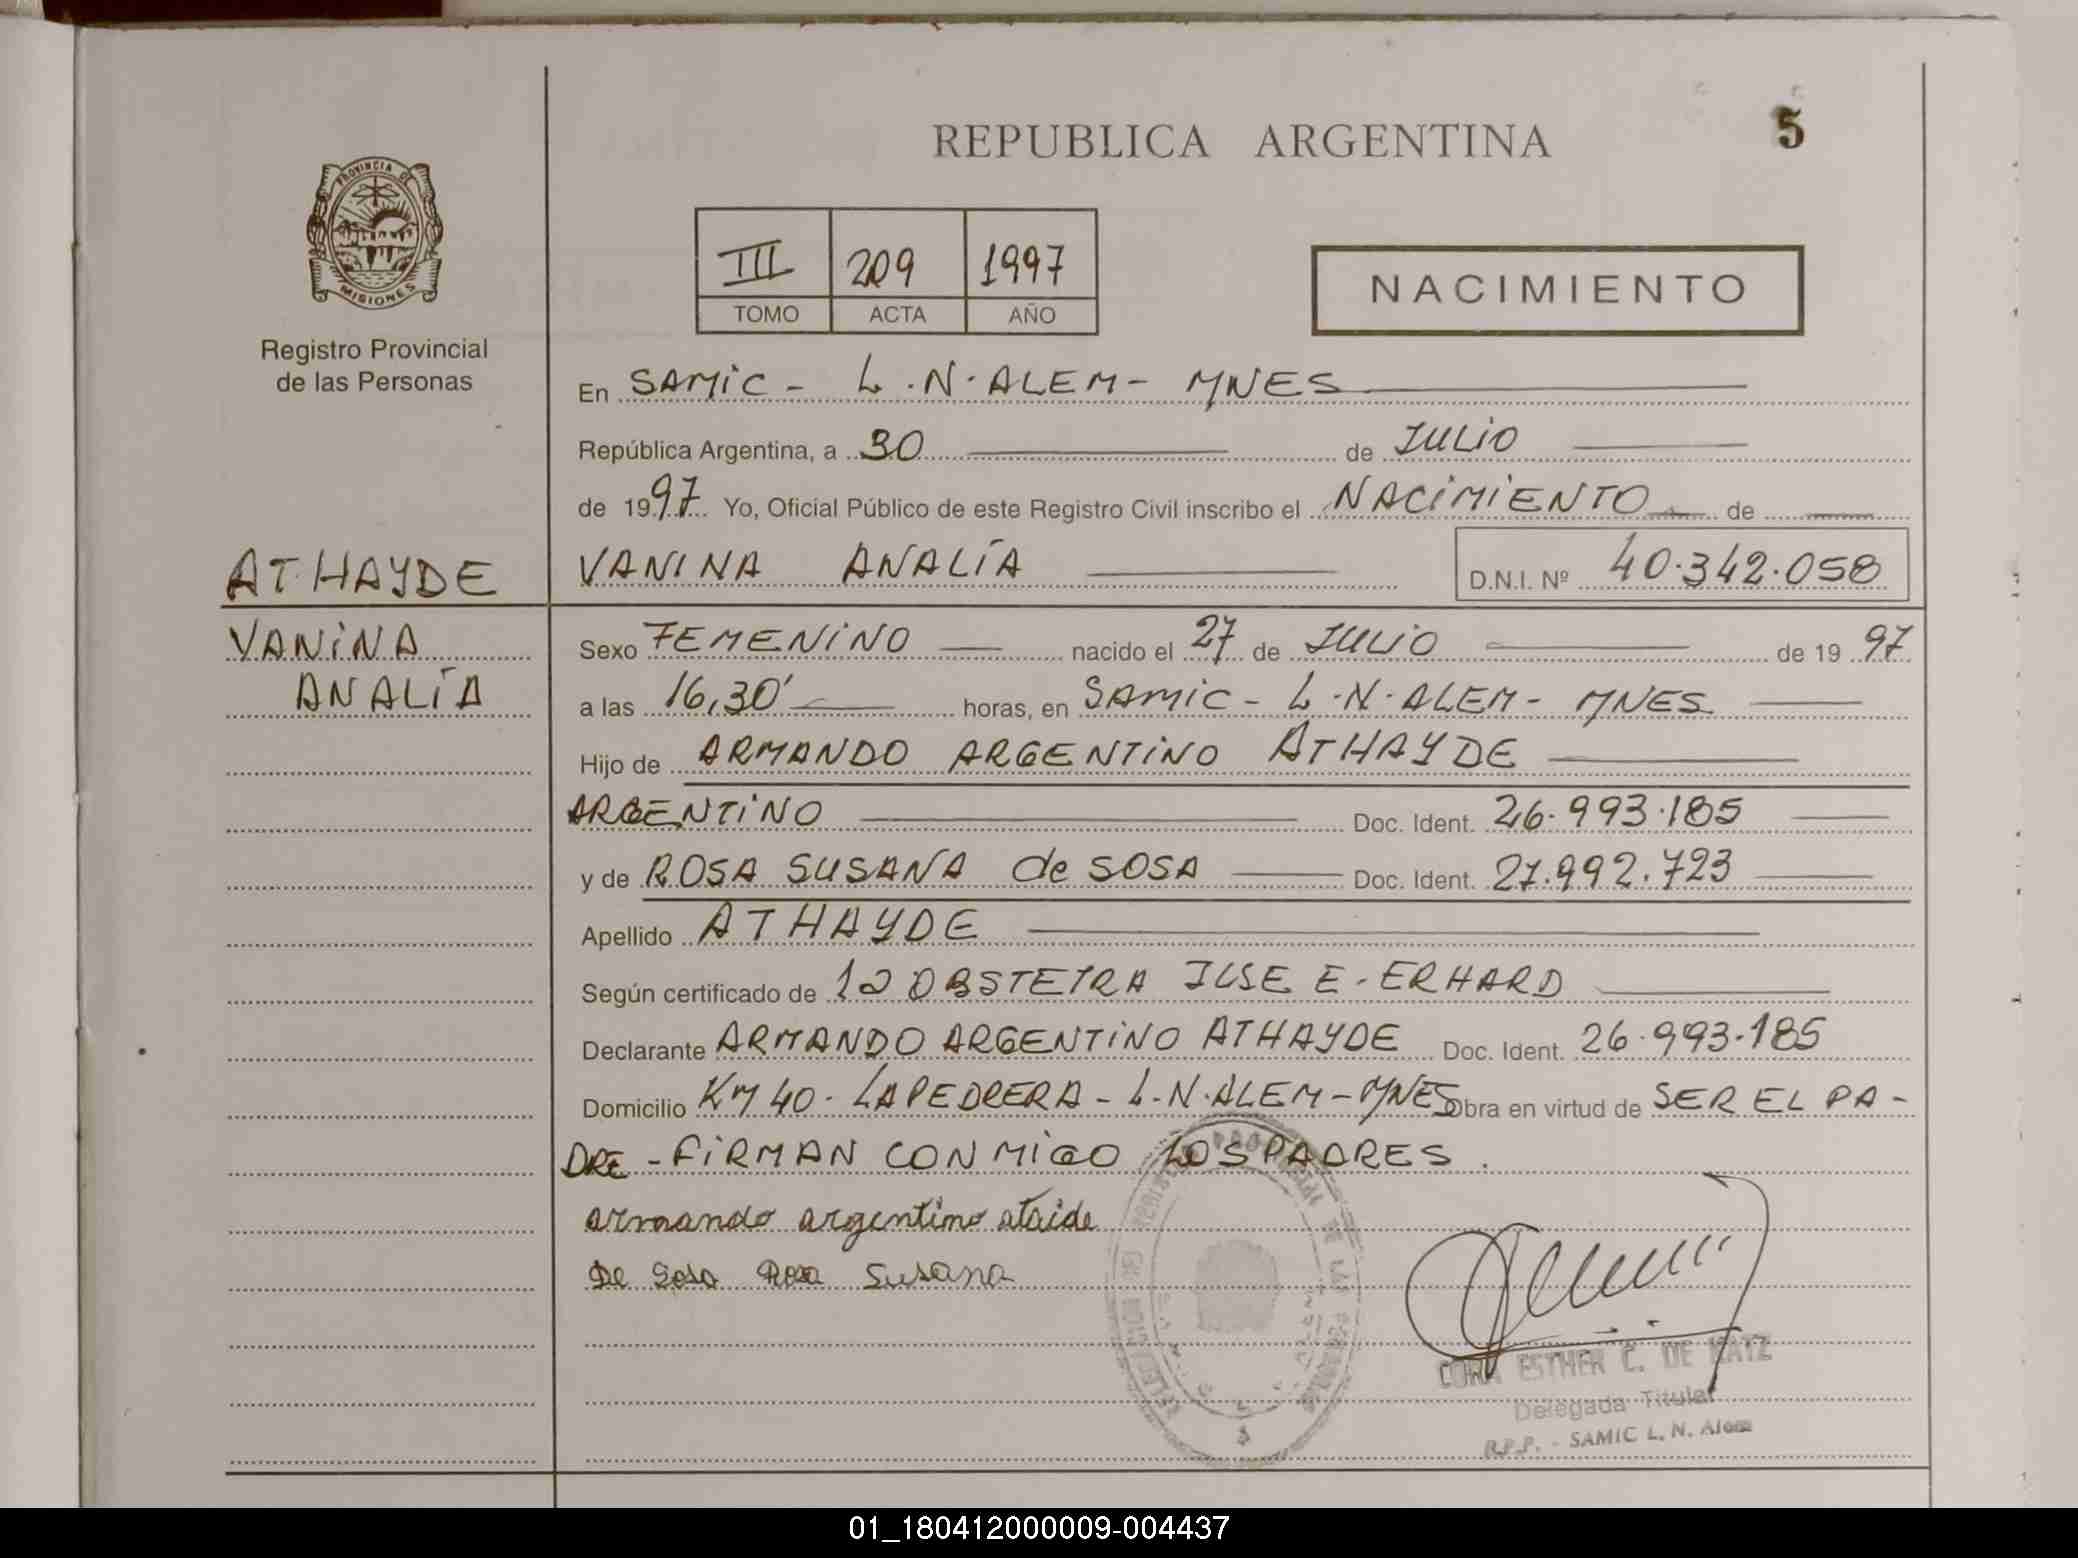 REPUBLICA ARGENTINA
5
PROVINCIA DE
MISIONES
Registro Provincial
de las Personas
III 209 1997
TOMO ACTA AÑO
NACIMIENTO
En SAMIC - L.N.ALEM - MNES
República Argentina, a 30 de JULIO
de 1997 Yo, Oficial Público de este Registro Civil inscribo el NACIMIENTO de
ATHAYDE
VANINA ANALÍA D.N.I. Nº 40.342.058
VANINA
ANALÍA
Sexo FEMENINO nacido el 27 de JULIO de 1997
a las 16,30' horas, en SAMIC - L.N.ALEM - MNES
Hijo de ARMANDO ARGENTINO ATHAYDE
ARGENTINO Doc. Ident. 26.993.185
y de ROSA SUSANA de SOSA Doc. Ident. 27.992.723
Apellido ATHAYDE
Según certificado de la OBSTETRA ILSE E. ERHARD
Declarante ARMANDO ARGENTINO ATHAYDE Doc. Ident. 26.993.185
Domicilio KM 40 - LA PEDRERA - L.N.ALEM - MNES Obra en virtud de SER EL PA-
DRE - FIRMAN CONMIGO LOS PADRES.
armando argentino ataide
De Sosa Rosa Susana
CORA ESTHER C. DE KATZ
Delegada Titular
R.P.P. - SAMIC L. N. Alem
01_180412000009-004437